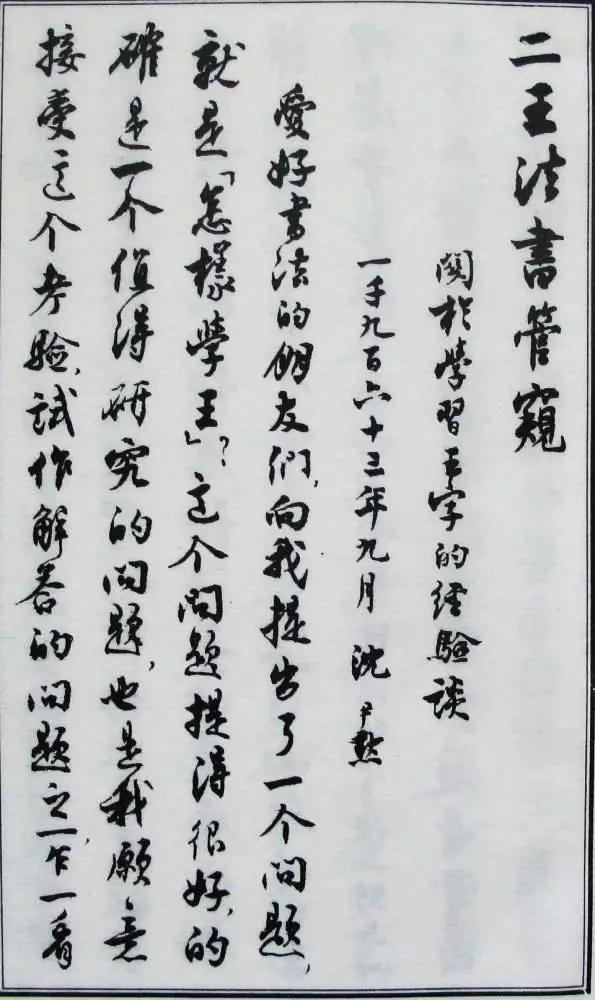 二王法書管窺
関於學習王字的经驗談
一千九百六十三年九月 沈尹默
愛好书法的朋友们,向我提出了一个问题,
就是「怎樣學王」?这个问题提得很好,的
確是一个值得研究的问题,也是我願意
接受这个考验,试作解答的问题之一,乍一看